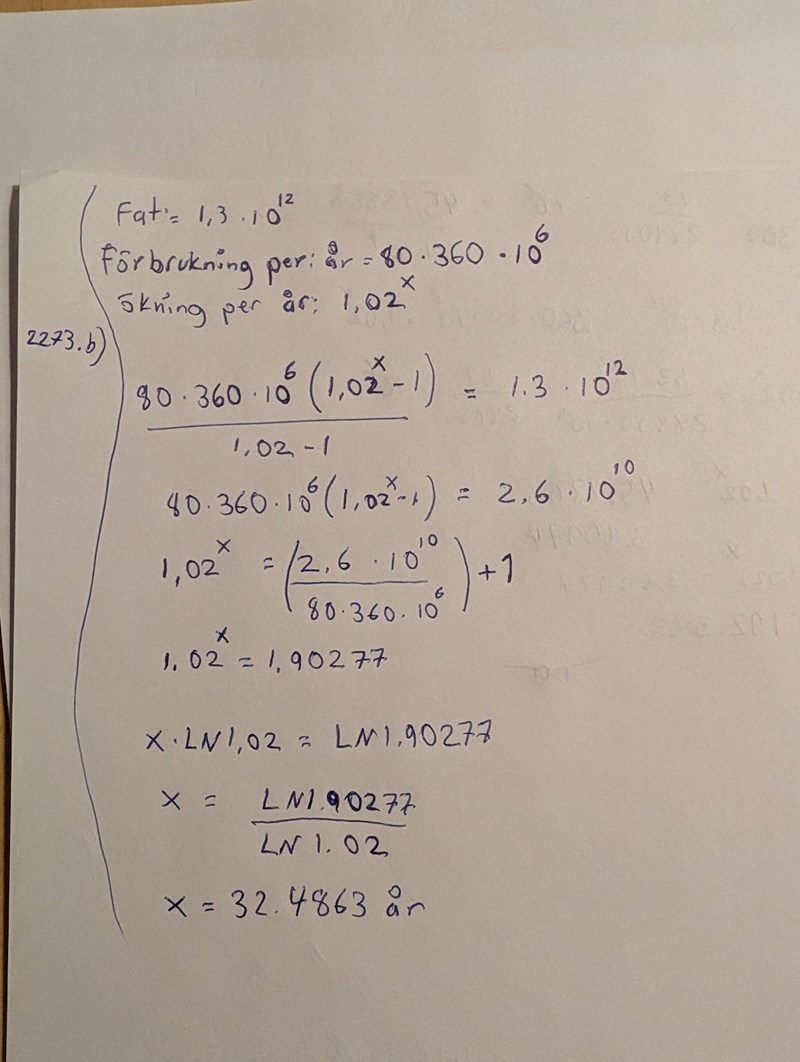 Fat: = 1,3 · 10^12
Förbrukning per: år = 80 · 360 · 10^6
ökning per år: 1,02^x
2273.b)
80 · 360 · 10^6 (1,02^x - 1) = 1.3 · 10^12
1,02 - 1
80 · 360 · 10^6 (1,02^x - 1) = 2,6 · 10^10
1,02^x = (2,6 · 10^10 / 80 · 360 · 10^6) + 1
1.02^x = 1,90277
x · LN 1,02 = LN 1.90277
x = LN 1.90277
LN 1.02
x = 32.4863 år